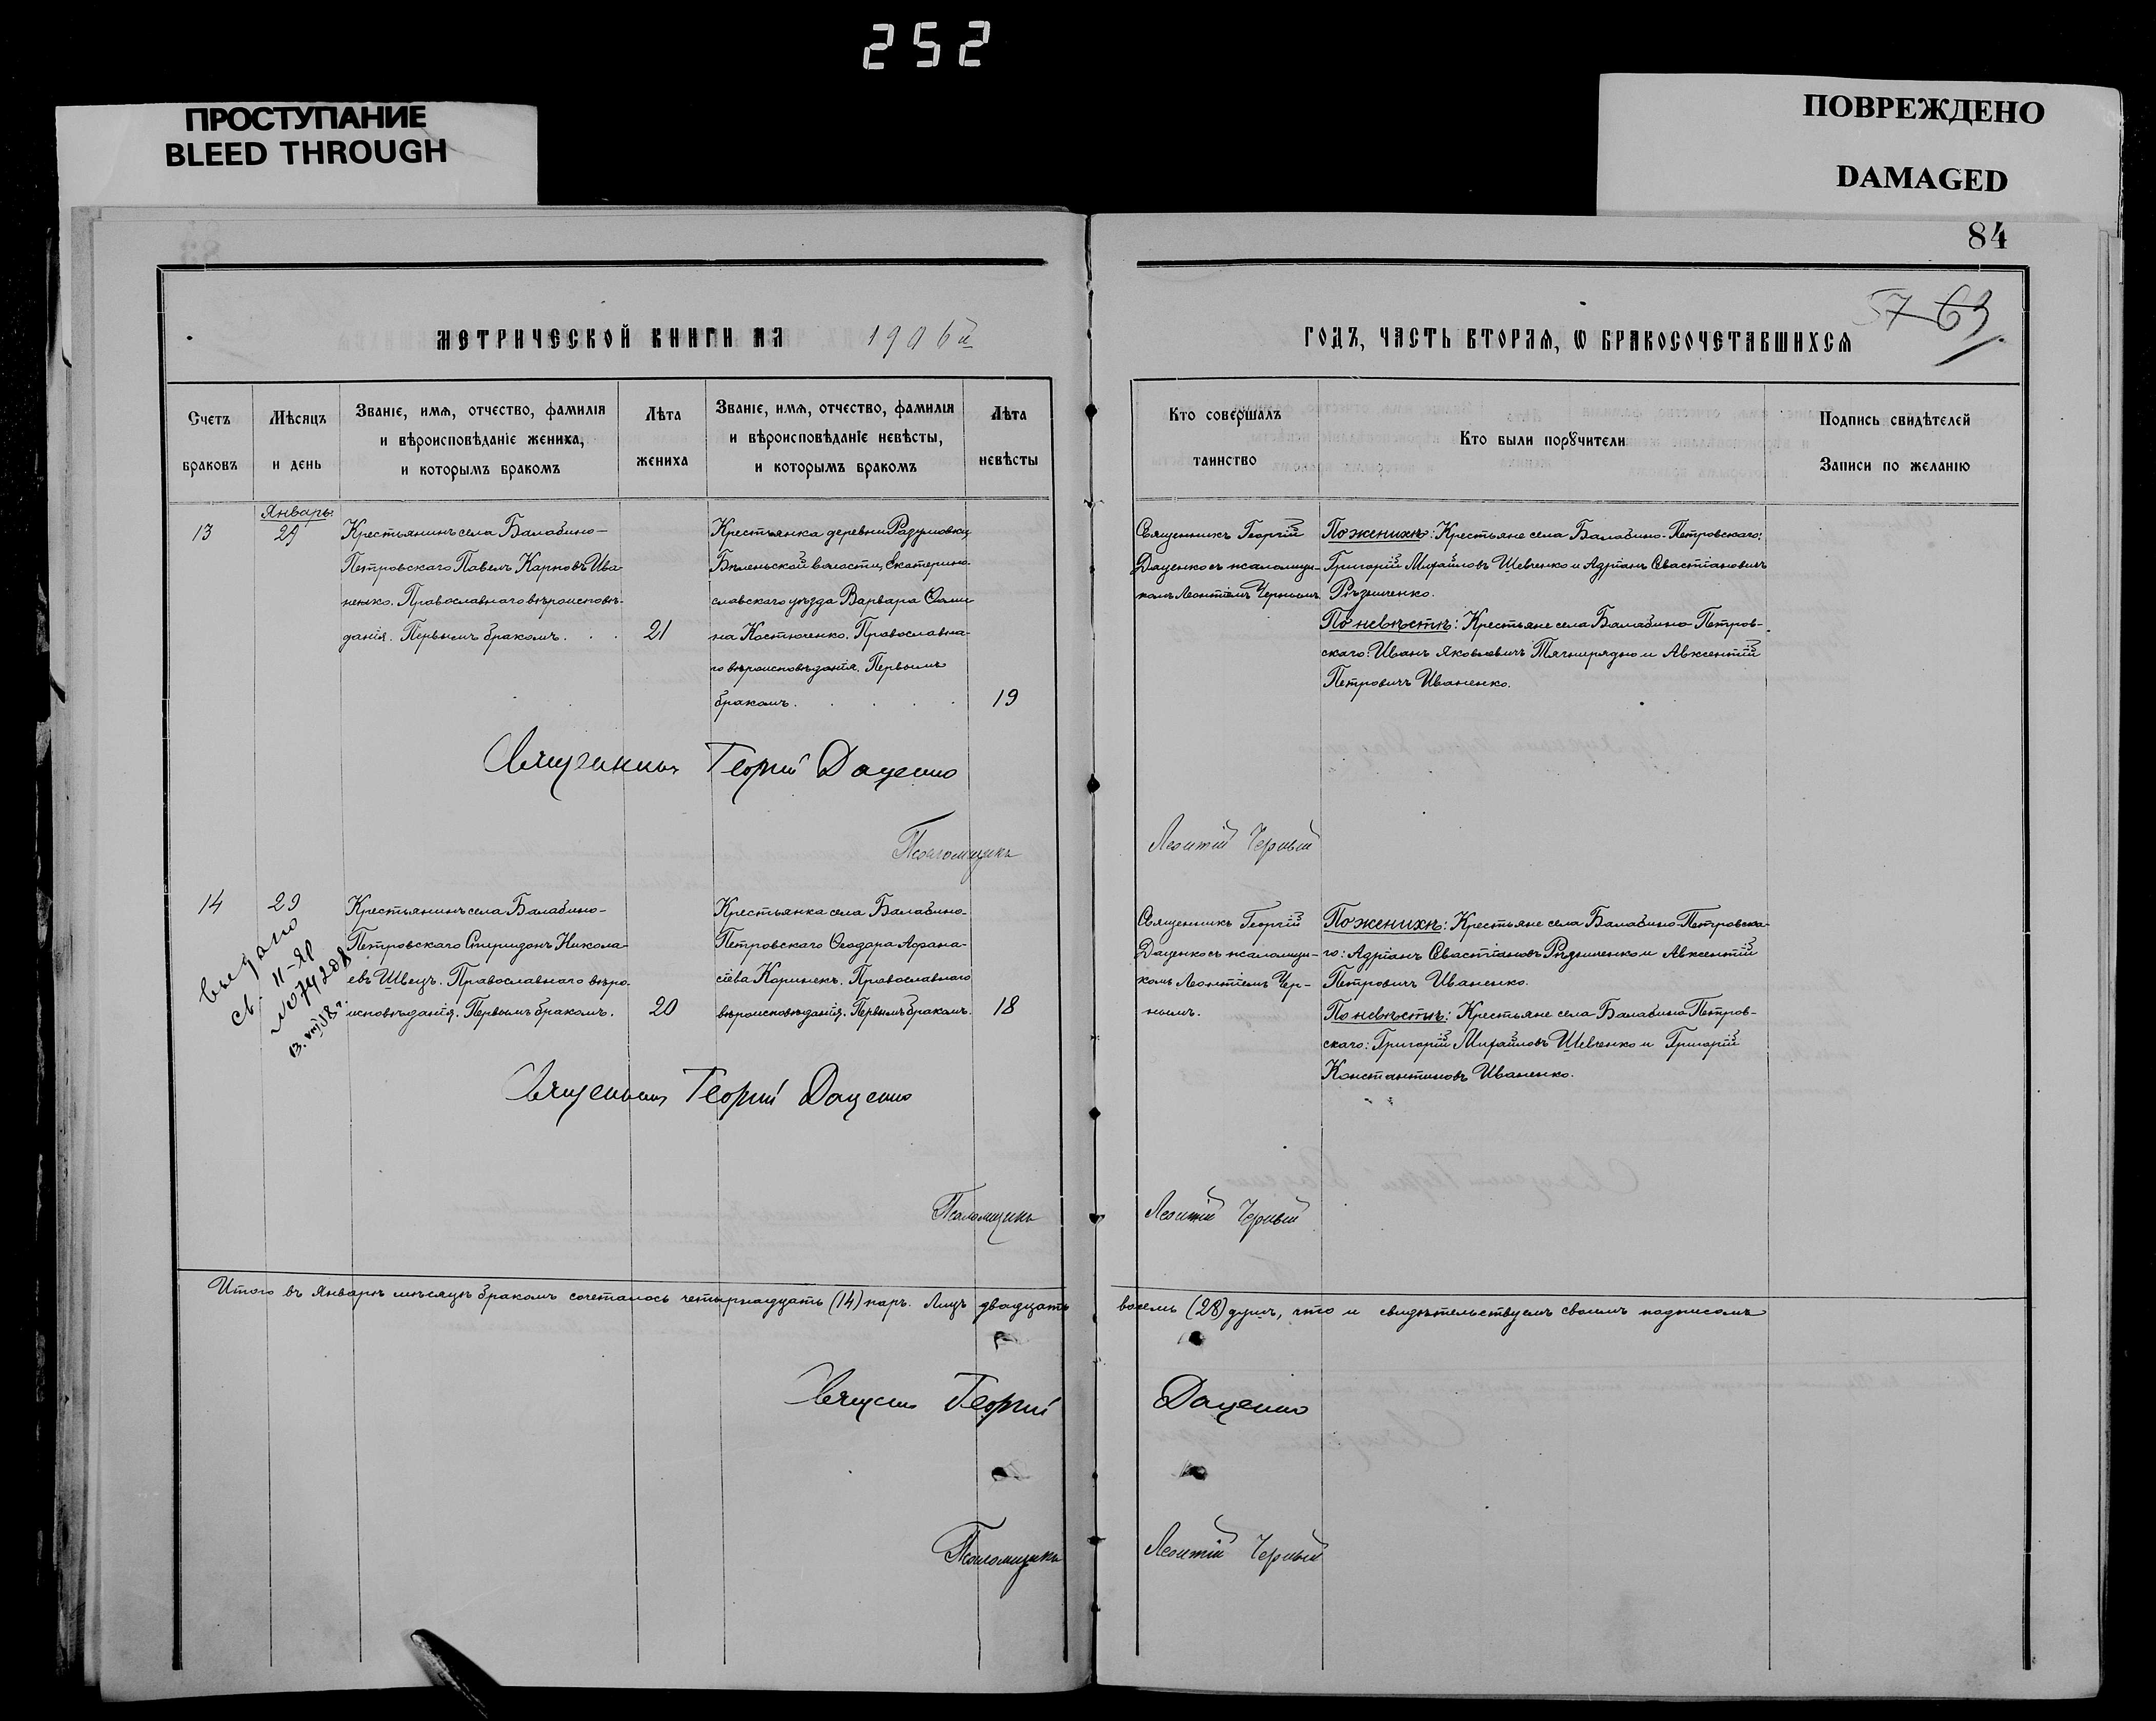 252
ПРОСТУПАНИЕ
BLEED THROUGH
ПОВРЕЖДЕНО
DAMAGED
84
57 63
МЕТРИЧЕСКОЙ КНИГИ НА 1906й
ГОДЪ, ЧАСТЬ ВТОРАЯ, Ѡ БРАКОСОЧЕТАВШИХСЯ
Счетъ
браковъ
Мѣсяцъ
и день
Званіе, имя, отчество, фамилія
и вѣроисповѣданіе жениха,
и которымъ бракомъ
Лѣта
жениха
Званіе, имя, отчество, фамилія
и вѣроисповѣданіе невѣсты,
и которымъ бракомъ
Лѣта
невѣсты
Кто совершалъ
таинство
Кто были порꙋчители
Подпись свидѣтелей
Записи по желанію
Январь
13
29
Крестьянинъ села Балабино-
Петровскаго Павелъ Карповъ Ива
ненко. Православнаго вѣроисповѣ-
данія. Первымъ бракомъ.
21
Крестьянка деревни Радумовки
Бѣленьской волости, Екатерино-
славскаго уѣзда Варвара Ѳоми
на Костюченко. Православна-
го вѣроисповѣданія. Первымъ
бракомъ.
19
Священникъ Георгій
Даценко съ псаломщи-
комъ Леонтіемъ Чернымъ
По женихѣ: Крестьяне села Балабино-Петровскаго:
Григорій Михайловъ Шевченко и Адріанъ Севастіановичъ
Рѣзниченко.
По невѣстѣ: Крестьяне села Балабино-Петров-
скаго: Иванъ Яковлевичъ Тягнирядно и Авксентій
Петровичъ Иваненко.
Священникъ Георгій Даценко
Псаломщикъ Леонтій Черный
14
29
Крестьянинъ села Балабино-
Петровскаго Спиридонъ Никола-
евъ Швецъ. Православнаго вѣро-
исповѣданія. Первымъ бракомъ.
20
Крестьянка села Балабино-
Петровскаго Ѳеодора Аѳана-
сіева Коринекъ. Православнаго
вѣроисповѣданія. Первымъ бракомъ.
18
Священникъ Георгій
Даценко съ псаломщи-
комъ Леонтіемъ Чер-
нымъ.
По женихѣ: Крестьяне села Балабино-Петровска-
го: Адріанъ Севастіановъ Рѣзниченко и Авксентій
Петровичъ Иваненко.
По невѣстѣ: Крестьяне села Балабино-Петров-
скаго: Григорій Михайловъ Шевченко и Григорій
Константиновъ Иваненко.
выдано
св. II-ЯР
№074208
13.VIII38г.
Священникъ Георгій Даценко
Псаломщикъ Леонтій Черный
Итого въ Январѣ мѣсяцѣ бракомъ сочеталось четырнадцать (14) паръ. Лицъ двадцать восемь (28) душъ, что и свидѣтельствуемъ своимъ подписомъ
Священ Георгій Даценко
Псаломщикъ Леонтій Черный